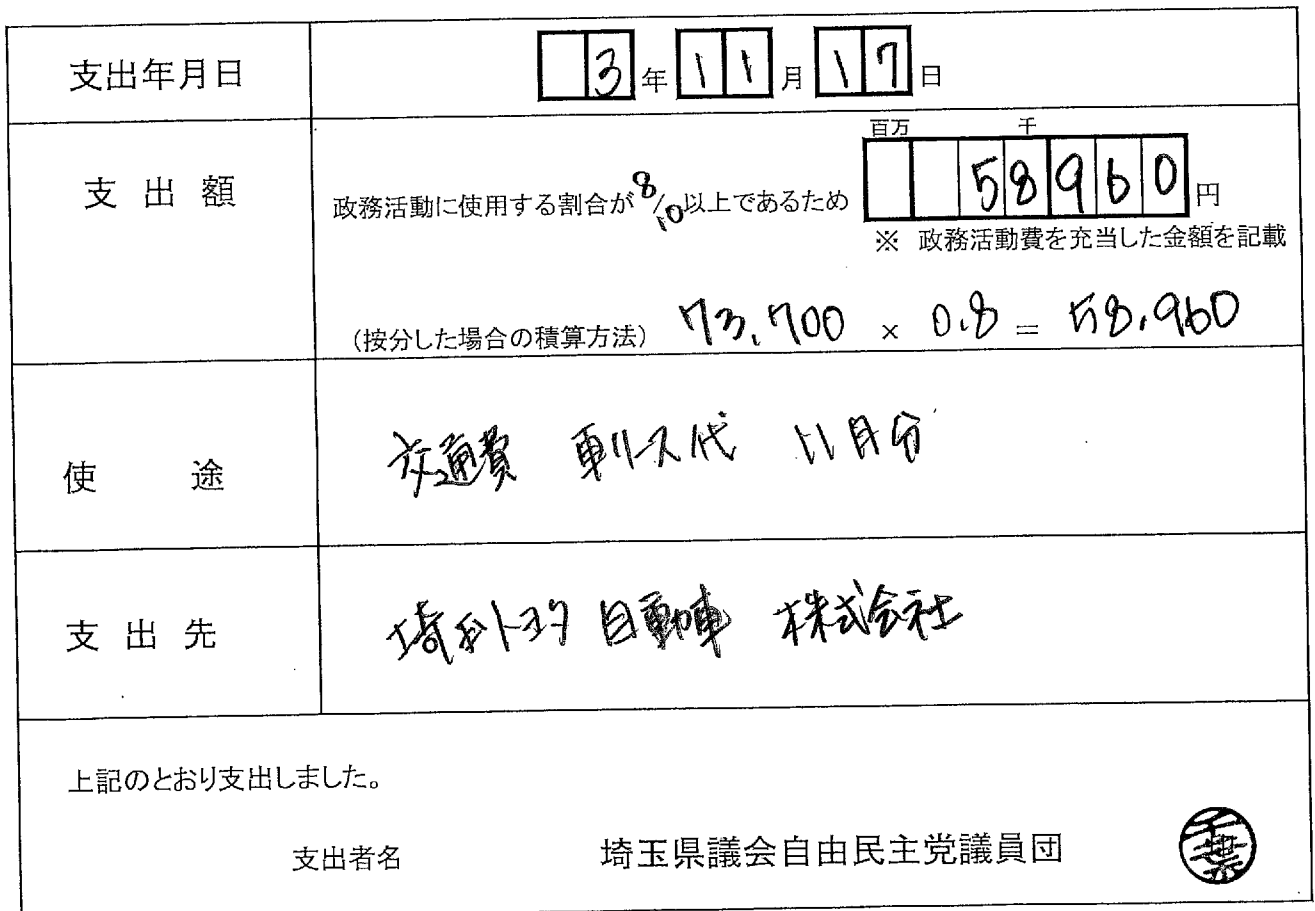 支出年月日 3年11月17日
百万 千
支出額 政務活動に使用する割合が8/10以上であるため 58960円
※ 政務活動費を充当した金額を記載
(按分した場合の積算方法) 73,700 × 0.8 = 58,960
使途 交通費 車リース代 11月分
支出先 埼玉トヨタ自動車 株式会社
上記のとおり支出しました。
支出者名 埼玉県議会自由民主党議員団 千葉